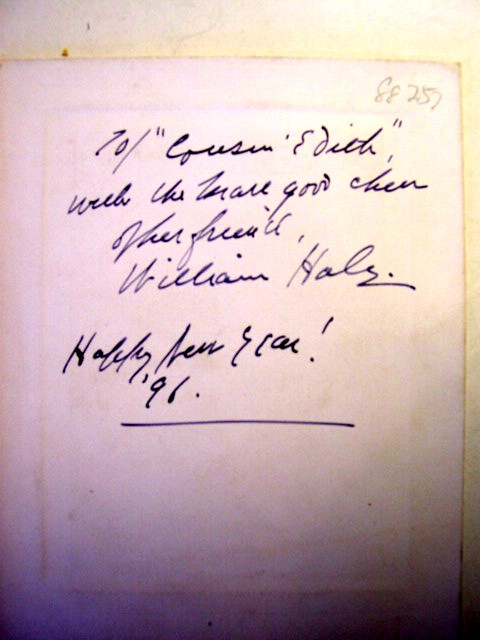 88257
To/ "Cousin Edith",
with the brave good cheer
of her friend,
William Haly.
Happy New Year!
'96.